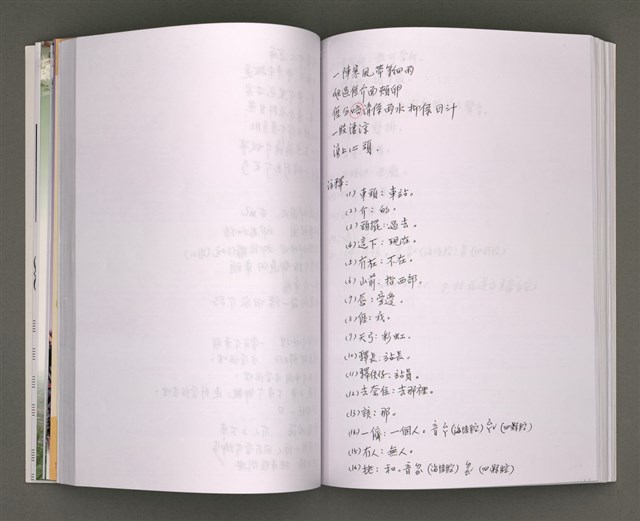 一陣寒風帶等細雨
介面頰卵
分 清係雨水抑係目汁
一股淒涼
湧上心頭。
註釋：
(1)車頭：車站。
(2)介：的。
(3)頭擺：過去。
(4)這下：現在。
(5)冇在：不在。
(6)山前：指西部。
(7)唇：旁邊。
(8)𠊎：我。
(9)天弓：彩虹。
(10)驛長：站長。
(11)驛伕仔：站員。
(12)去奈位：去那裡。
(13)該：那。
(14)一儕：一個人。音 (海陸腔) (四縣腔)
(15)冇人：無人。
(16) ：和。音 (海陸腔) (四縣腔)